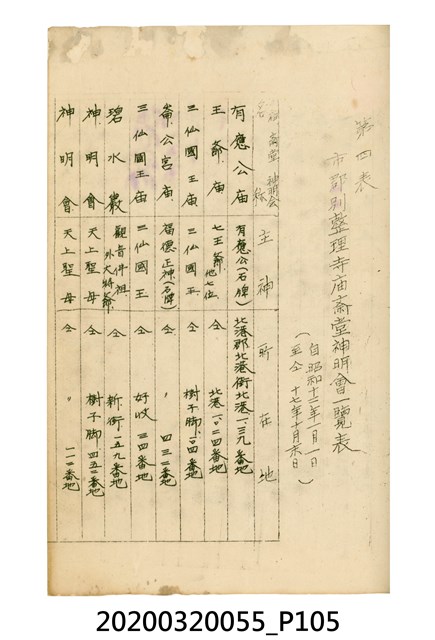 第四表
市郡別整理寺庙斎堂神明會一覽表
(自昭和十二年一月一日
至仝十七年十月末日)
斎堂 神明会 名称 主神 所在地
有應公庙 有應公(石牌) 北港郡北港街北港一、三九番地
王爺庙 七王爺 他七位 仝 北港一、〇二四番地
三仙國王庙 三仙國王 仝 樹子脚一〇四番地
崙公宮庙 福德正神(石牌) 仝 〃 四三二番地
三仙國王庙 三仙國王 仝 好收 三四番地
碧水巖 觀音佛祖 外大特爺 仝 新街一五九番地
神明會 天上聖母 仝 樹子脚、四五二番地
神明會 天上聖母 仝 〃 一一二番地
20200320055_P105